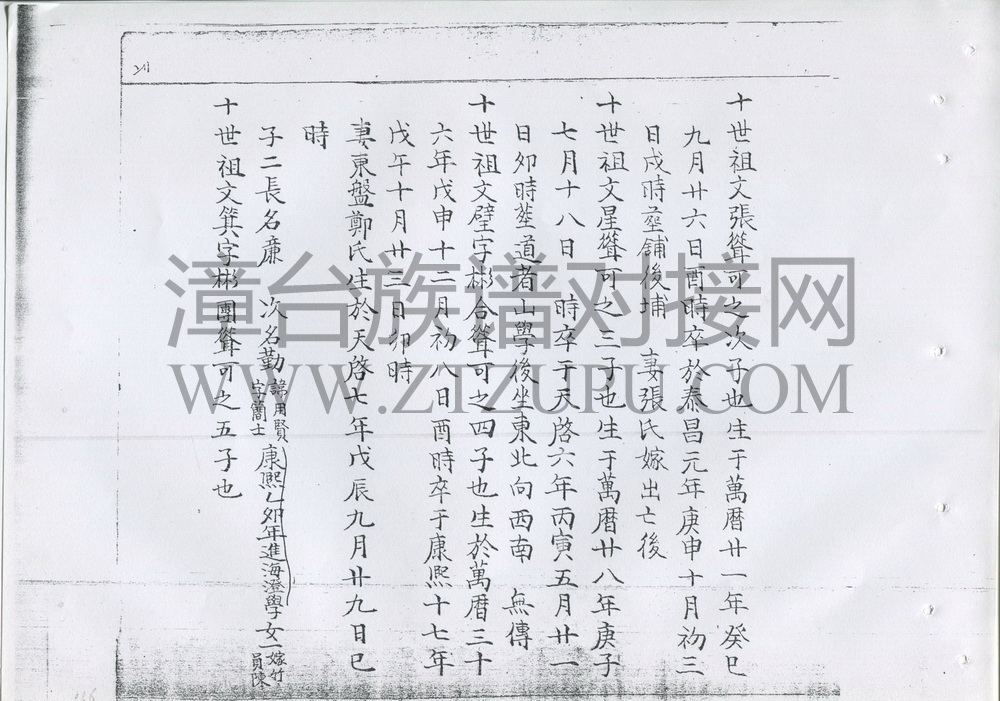 十世祖文張聳可之次子也生于萬曆廿一年癸巳
九月廿六日酉時卒於泰昌元年庚申十月初三
日戌時葬舖後埔 妻張氏嫁出亡後
十世祖文星聳可之三子也生于萬曆廿八年庚子
七月十八日 時卒于天啓六年丙寅五月廿一
日卯時葬道者山學後坐東北向西南 無傳
十世祖文璧字彬合聳可之四子也生於萬曆三十
六年戊申十二月初八日酉時卒于康熙十七年
戊午十月廿三日卯時
妻東盤鄭氏生於天啓七年戊辰九月廿九日巳
時
子二長名廉 次名勤 諱用賢 字蘭士 康熙乙卯年進海澄學 女一嫁竹員陳
十世祖文箕字彬團聳可之五子也
漳台族谱对接网
WWW.ZIZUPU.COM